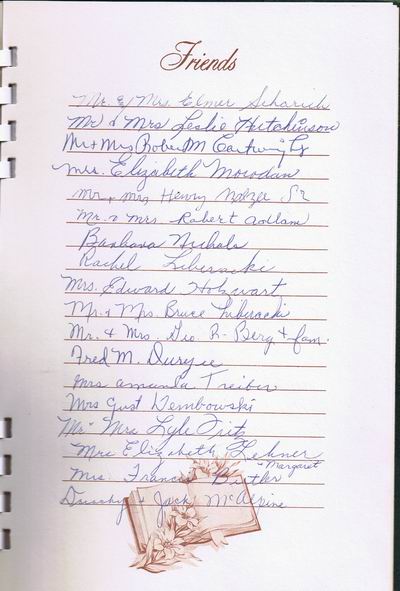 Friends
Mr. & Mrs. Elmer Scharich
Mr & Mrs Leslie Hutchinson
Mr & Mrs Robert M Cartwright
Mrs. Elizabeth
Mr & Mrs Henry Sr
Mr. & Mrs. Robert
Barbara Nichols
Rachel Liberacki
Mrs. Edward Holzwart
Mr. & Mrs. Bruce Liberacki
Mr. & Mrs. Geo. R. Berg & fam.
Fred M. Duryee
Mrs Amanda Treiber
Mrs Gust Dembowski
Mr Mrs Lyle Fritz
Mrs Elizabeth Lehner
" Margaret
Mrs. Francis Butler
& Jack McAlpine